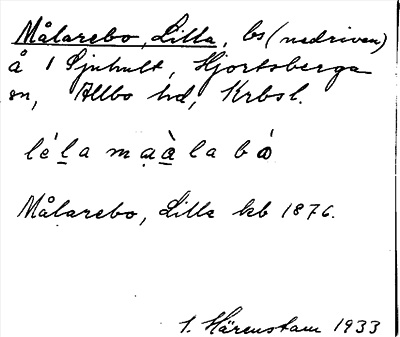 Målarebo, Lilla, bs (nedriven)
å 1 Sjuhult, Hjortsberga
sn, Allbo hd, Krbsl.
lé l a m a à l a b ó
Målarebo, Lilla kb 1876.
S. Härenstam 1933